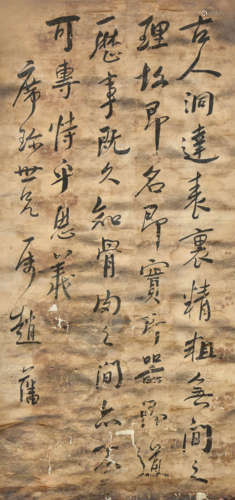 古人洞達表裏精粗無間之
理故即名即實即器即道
歷事既久知骨肉之間亦不
可專恃乎恩義
席珍世兄 屬 趙舊